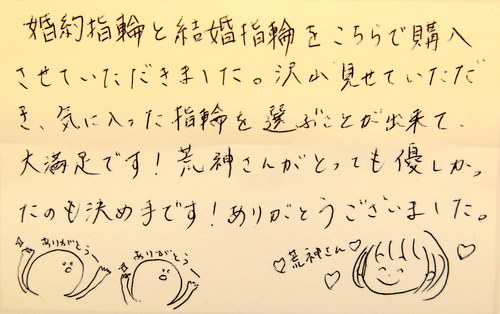 婚約指輪と結婚指輪をこちらで購入
させていただきました。沢山見せていただ
き、気に入った指輪を選ぶことが出来て、
大満足です！荒神さんがとっても優しかっ
たのも決め手です！ありがとうございました。
ありがとうー
ありがとうー
♡荒神さん♡